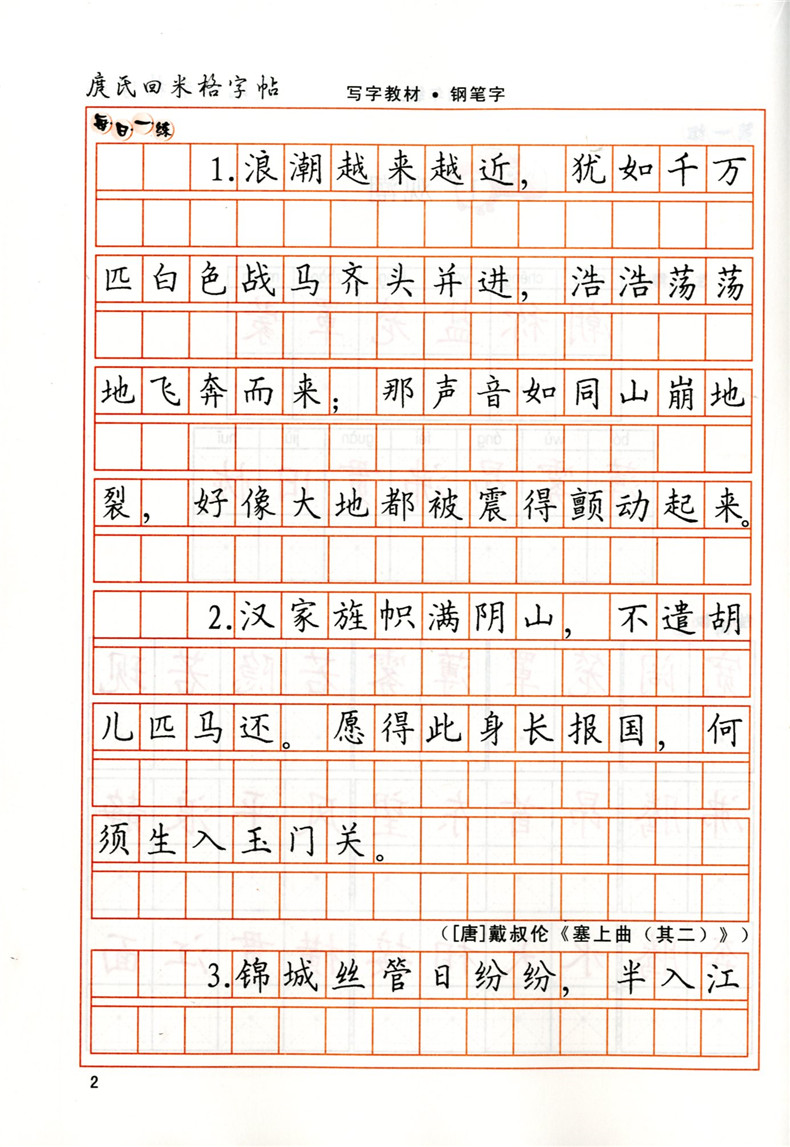 庹氏回米格字帖 写字教材·钢笔字
每日一练
1.浪潮越来越近，犹如千万
匹白色战马齐头并进，浩浩荡荡
地飞奔而来；那声音如同山崩地
裂，好像大地都被震得颤动起来。
2.汉家旌帜满阴山，不遣胡
儿匹马还。愿得此身长报国，何
须生入玉门关。
（[唐]戴叔伦《塞上曲（其二）》）
3.锦城丝管日纷纷，半入江
2